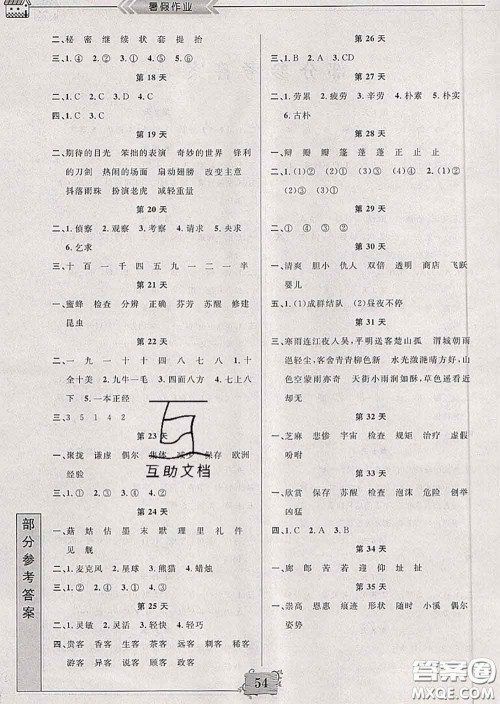 暑假作业
二、秘 密 继 续 状 套 提 拾
三、1.④ 2.① 3.② 4.③
第 18 天
二、1.C 2.D 3.C
四、1.C 2.C 3.D 4.C
第 19 天
二、期待的目光 笨拙的表演 奇妙的世界 锋利
的刀剑 热闹的场面 扇动翅膀 改变主意
抖落雨珠 扮演老虎 减轻重量
第 20 天
二、1.侦察 2.观察 3.考察 4.请求 5.央求
6.乞求
三、十 百 一 千 四 五 九 一 二 一 半
第 21 天
一、蜜蜂 检查 分辨 正确 芬芳 苏醒 修建
昆虫
第 22 天
二、一 九 一 十 十 十 四 八 七 八 1.十
全十美 2.九牛一毛 3.四面八方 4.七上八
下 5.一本正经
三、3 5 1 4 2
第 23 天
一、聚拢 谦虚 偶尔 集体 减少 保存 欧洲
经验
三、1.② 2.① 3.③ 4.①
第 24 天
一、菇 姑 估 墨 末 默 理 里 礼 件
见 舰
二、1.麦克风 2.星球 3.熊猫 4.蜡烛
第 25 天
二、1.灵敏 2.灵活 3.机灵 4.灵巧
四、贵客 香客 生客 茶客 远客 刺客 稀客
游客 异客 说客 旅客 政客 顾客 乘客
第 26 天
三、1.A 2.C 3.CD
第 27 天
二、1.劳累 2.疲劳 3.辛劳 4.朴素 5.朴实
6.古朴
第 28 天
一、辩 瓣 瓣 篷 蓬 蓬 正 止 止
二、(1)② (2)① (3)③ (4)②
第 29 天
三、①④ ②③
第 30 天
一、清爽 胆小 仇人 双倍 透明 商店 飞跃
婴儿
五、1.(1)成群结队 (2)昼夜不停
第 31 天
三、寒雨连江夜入吴,平明送客楚山孤 渭城朝雨
浥轻尘,客舍青青柳色新 水光潋滟晴方好,
山色空蒙雨亦奇 天街小雨润如酥,草色遥
看近却无
第 32 天
一、芝麻 悲惨 宇宙 检查 规矩 治疗 虚假
吩咐
第 33 天
一、欣赏 保存 苏醒 检查 泡沫 危险 创伤
凶猛
四、1.C 2.A 3.B
第 34 天
一、廊 郎 若 苦 迎 仰 扯 址
第 35 天
一、崇高 恩惠 痕迹 形状 随时 小溪 偶尔
姿势
部分参考答案
54
互助文档
答案圈
MXQE.COM